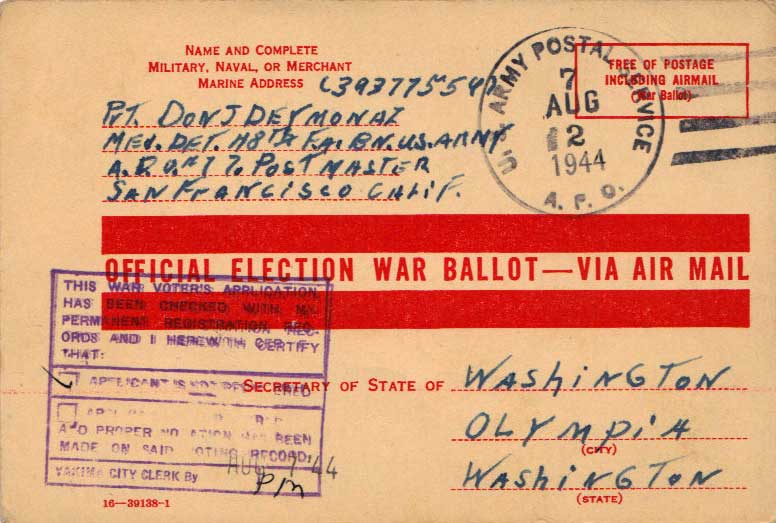 NAME AND COMPLETE
MILITARY, NAVAL, OR MERCHANT
MARINE ADDRESS (39377554)
PVT. DON J DEYMONAZ
MED. DET. 48TH F.A. BN. U.S. ARMY
A.P.O. #17 % POSTMASTER
SAN FRANCISCO CALIF.
U.S. ARMY POSTAL SERVICE
7
AUG
2
1944
A. P. O.
FREE OF POSTAGE
INCLUDING AIRMAIL
(War Ballot)
OFFICIAL ELECTION WAR BALLOT—VIA AIR MAIL
THIS WAR VOTER'S APPLICATION
HAS BEEN CHECKED WITH MY
PERMANENT REGISTRATION REC-
ORDS AND I HEREWITH CERTIFY
THAT:
APPLICANT IS NOT REGISTERED
AND PROPER NOTATION HAS BEEN
MADE ON SAID VOTING RECORD:
AUG 7 '44
YAKIMA CITY CLERK By
PM
SECRETARY OF STATE OF WASHINGTON
OLYMPIA
(CITY)
WASHINGTON
(STATE)
16—39138-1